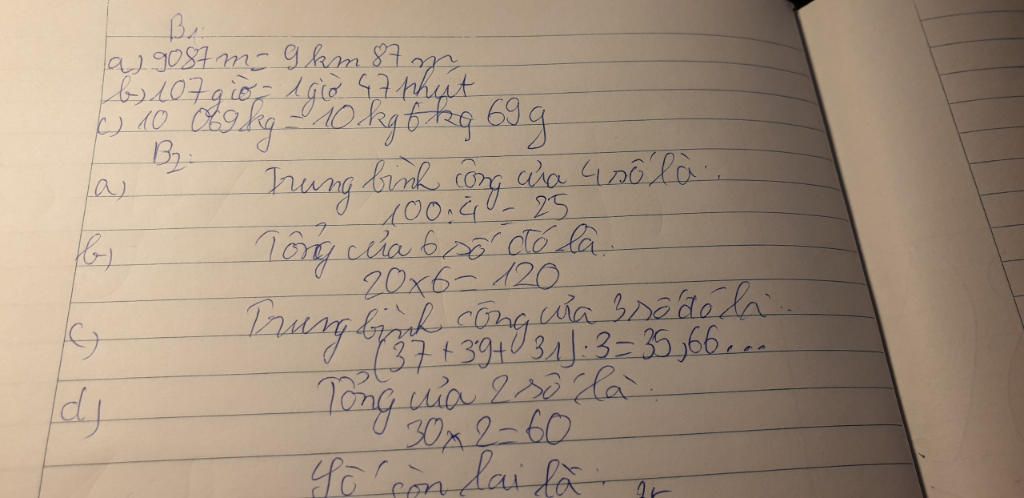 B1:
a) 9087m = 9km 87m
b) 107giờ = 1giờ 47 phút
c) 10 069kg = 10kg 6kg 69g
B2:
a) Trung bình cộng của 4 số là:
100:4 = 25
b) Tổng của 6 số đó là:
20×6 = 120
c) Trung bình cộng của 3 số đó là:
(37 + 39 + 31) : 3 = 35,66...
d) Tổng của 2 số là:
30×2 = 60
Số còn lại là: